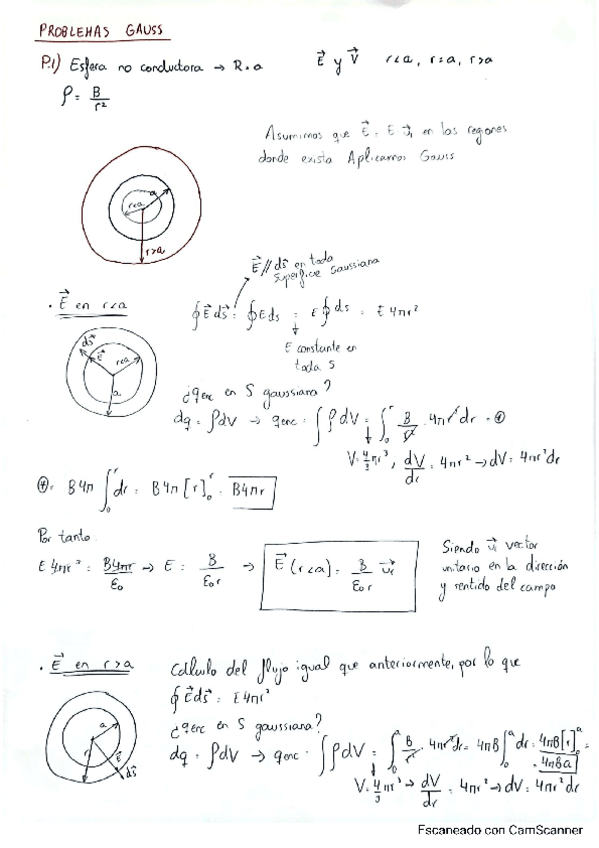 PROBLEMAS GAUSS
P.1) Esfera no conductora → R = a      E⃗ y V⃗   r<a, r=a, r>a
ρ = B/r²
Asumimos que E⃗ = E u⃗r en las regiones
donde exista Aplicamos Gauss
a
r<a
r>a
E⃗ // ds⃗ en toda
superficie gaussiana
· E⃗ en r<a
∮E⃗ds⃗ = ∮Eds = E∮ds = E4πr²
E constante en
toda S
ds⃗
E⃗
r<a
a
¿qenc en S gaussiana?
dq = ρdV → qenc = ∫ρdV = ∫₀ʳ B/r² · 4πr²dr = ⊛
V = 4/3 πr³, dV/dr = 4πr² → dV = 4πr²dr
⊛ = B4π ∫₀ʳ dr = B4π [r]₀ʳ = B4πr
Por tanto
E4πr² = B4πr/ε₀ → E = B/ε₀r → E⃗(r<a) = B/ε₀r u⃗r
Siendo u⃗r vector
unitario en la dirección
y sentido del campo
· E⃗ en r>a
Cálculo del flujo igual que anteriormente, por lo que
∮E⃗ds⃗ = E4πr²
¿qenc en S gaussiana?
dq = ρdV → qenc = ∫ρdV = ∫₀ᵃ B/r² · 4πr²dr = 4πB∫₀ᵃ dr = 4πB[r]₀ᵃ =
= 4πBa
V = 4/3 πr³ → dV/dr = 4πr² → dV = 4πr²dr
a
r
E⃗
ds⃗
Escaneado con CamScanner